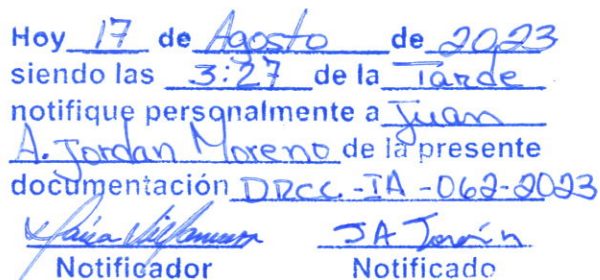 Hoy 17 de Agosto de 2023
siendo las 3:27 de la Tarde
notifique personalmente a Juan
A. Jordan Moreno de la presente
documentación DRCC-IA-062-2023
JA Jordán
Notificador Notificado